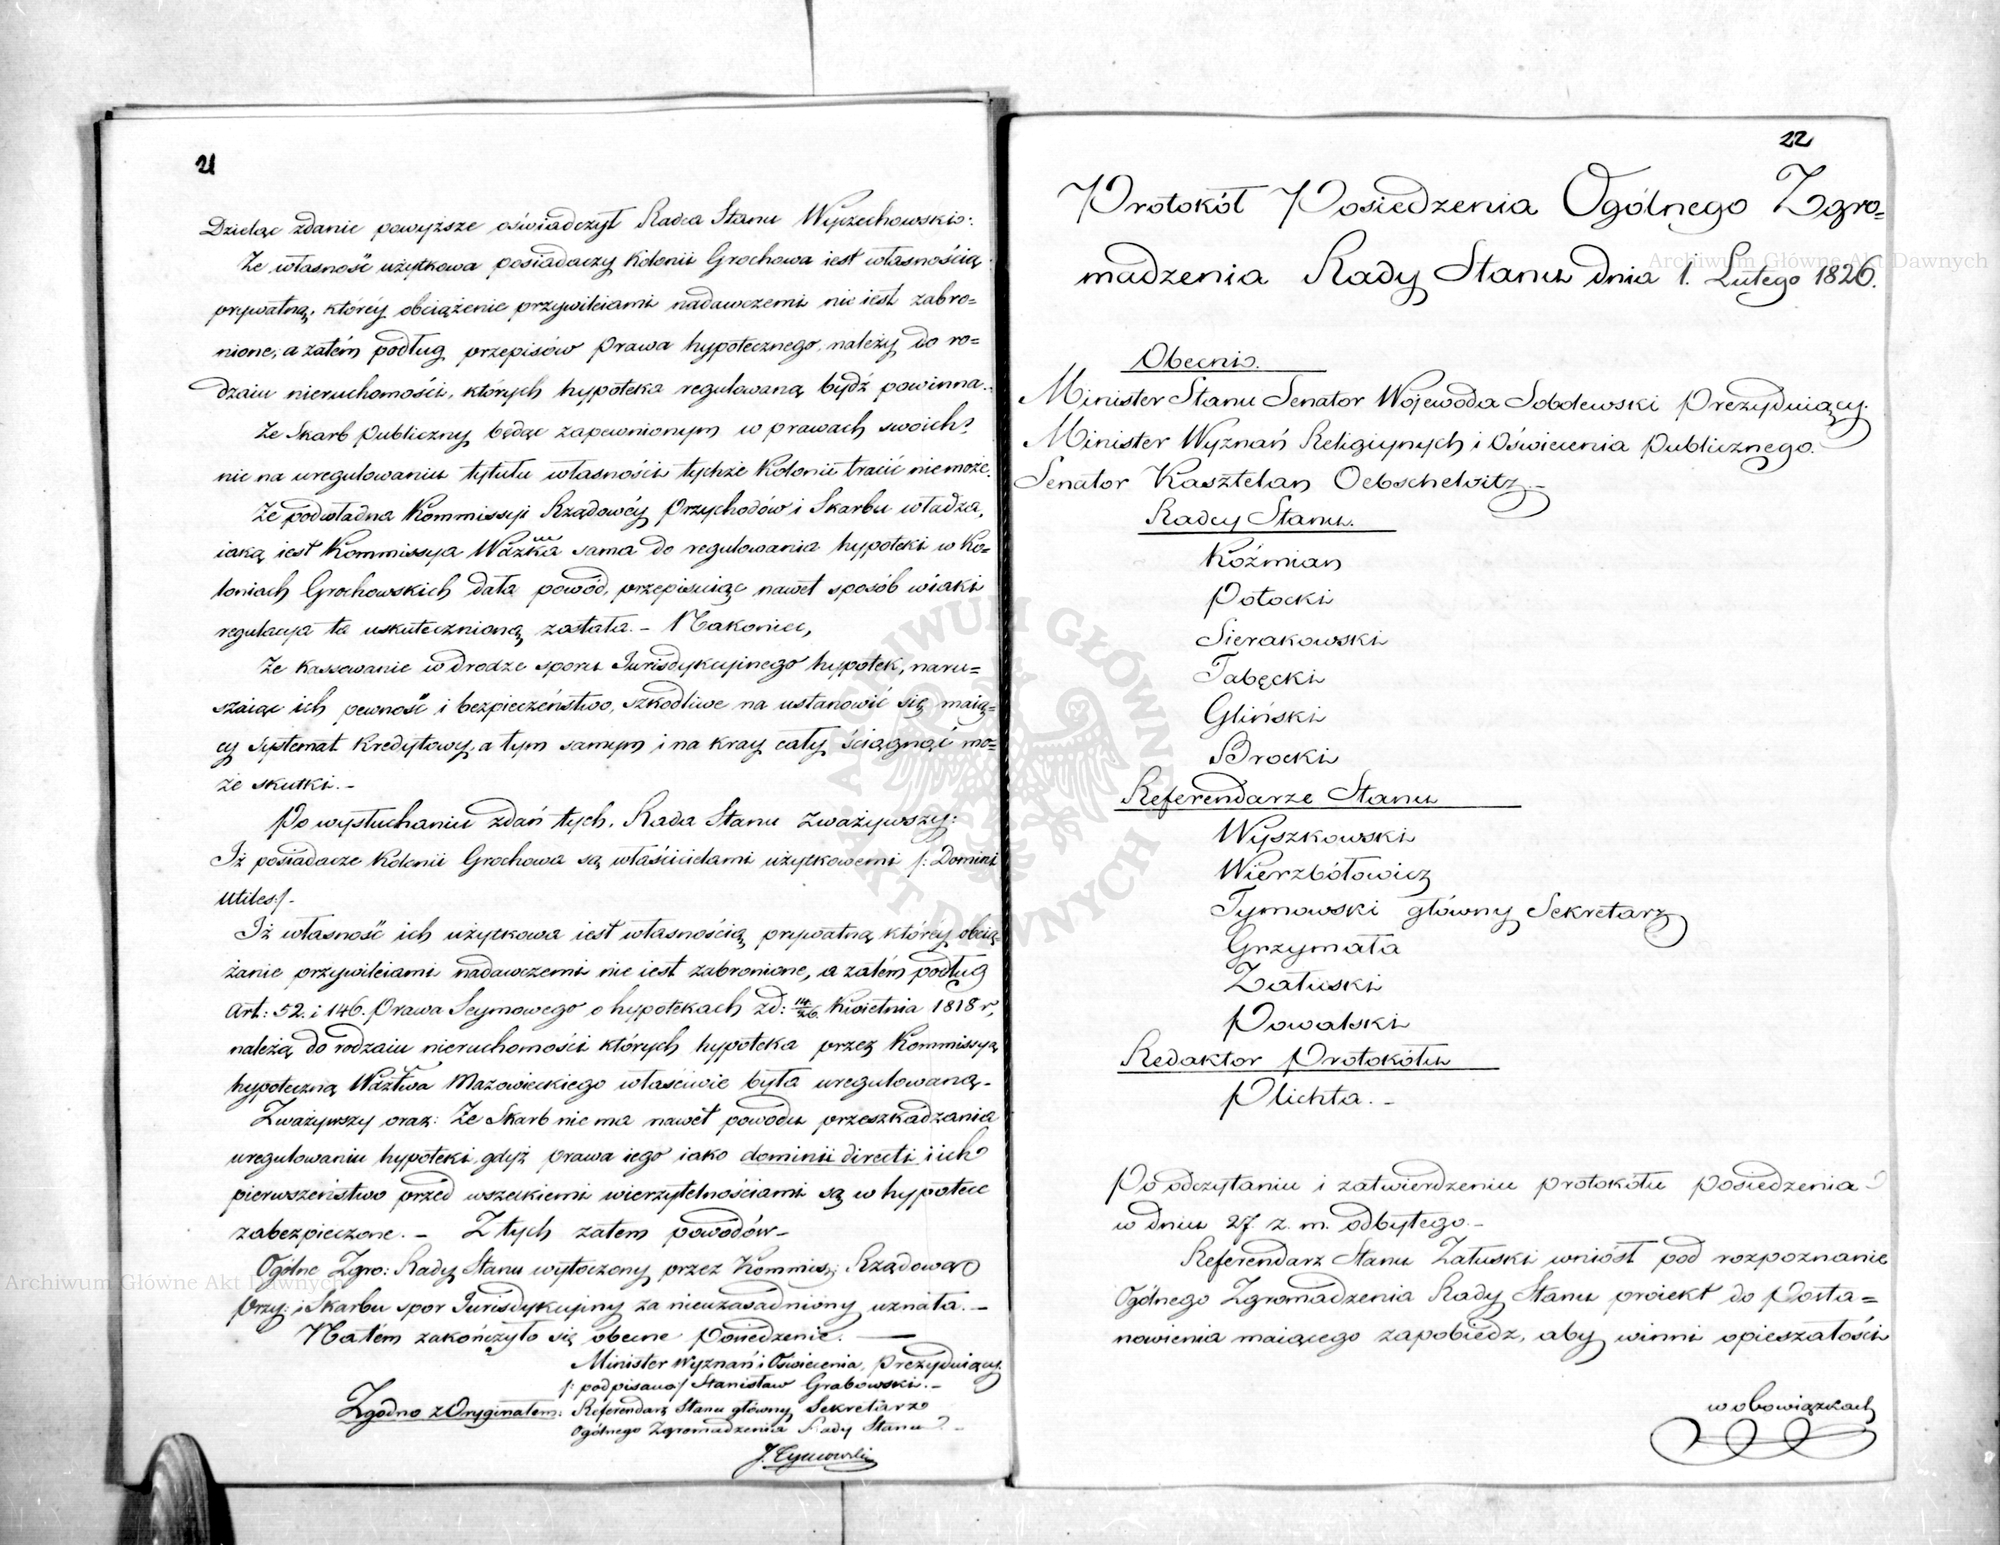 21
Dzieląc zdanie powyższe oświadczył Radca Stanu Wyczechowski:
Że własność użytkowa posiadaczy Kolonii Grochowa iest własnością
prywatną, któréy obciążenie przywileiami nadawczemi nie iest zabro=
nione, a zatém podług przepisów Prawa hypotecznego, należy do ro=
dzaiu nieruchomości, których hypoteka regulowaną bydź powinna.
Że Skarb Publiczny będąc zapewnionym w prawach swoich,
nic na uregulowaniu tytułu własności tychże Kolonii tracić nie może.
Że podwładna Kommissyi Rządowéy Przychodów i Skarbu władza,
iaką iest Kommissya Wdzka sama do regulowania hypoteki w Ko=
loniach Grochowskich dała powód, przepisuiąc nawet sposób w iaki
regulacya ta uskutecznioną została. – Nakoniec,
Że kassowanie w drodze sporu Jurisdykcyinego hypotek, naru=
szaiąc ich pewność i bezpieczeństwo, szkodliwe na ustanowić się maią=
cy systemat kredytowy, a tym samym i na kray cały ściągnąć mo=
że skutki. –
Po wysłuchaniu zdań tych, Rada Stanu zważywszy:
Iż posiadacze Kolonii Grochowa są właścicielami użytkowemi /: Domini
utiles:/ –
Iż własność ich użytkowa iest własnością prywatną któréy obcią=
żanie przywileiami nadawczemi nie iest zabronione, a zatém podług
Art: 52. i 146. Prawa Seymowego o hypotekach zd: 14/26 Kwietnia 1818 r,
należą do rodzaiu nieruchomości których hypoteka przez Kommissyą
hypoteczną Wdztwa Mazowieckiego właściwie była uregulowaną. –
Zważywszy oraz: Że Skarb nie ma nawet powodu przeszkadzania
uregulowaniu hypoteki, gdyż prawa iego iako dominii directi i ich
pierwszeństwo przed wszelkiemi wierzytelnościami są w hypotece
zabezpieczone. – Z tych zatem powodów –
Ogólne Zgro: Rady Stanu wytoczony przez Kommiss: Rządową
Przy: i Skarbu spor Jurisdykcyiny za nieuzasadniony uznała. –
Na tém zakończyło się obecne Posiedzenie. –
Minister Wyznań i Oświecenia, Prezyduiący.
/: podpisano:/ Stanisław Grabowski. –
Zgodno z Oryginałem: Referendarz Stanu główny Sekretarz
Ogólnego Zgromadzenia Rady Stanu –
J. Tymowski
22
Protokół Posiedzenia Ogólnego Zgro=
madzenia Rady Stanu dnia 1. Lutego 1826.
Obecni.
Minister Stanu Senator Wojewoda Sobolewski Prezyduiący.
Minister Wyznań Religiynych i Oświecenia Publicznego.
Senator Kasztelan Oebschelwitz. –
Radcy Stanu.
Koźmian
Potocki
Sierakowski
Tabęcki
Gliński
Brocki
Referendarze Stanu
Wyszkowski
Wierzbółowicz
Tymowski główny Sekretarz
Grzymała
Załuski
Powalski
Redaktor Protokółu
Plichta. –
Po odczytaniu i zatwierdzeniu protokołu posiedzenia
w dniu 27. z. m. odbytego. –
Referendarz Stanu Załuski wniósł pod rozpoznanie
Ogólnego Zgromadzenia Rady Stanu proiekt do Posta=
nowienia maiącego zapobiedz, aby winni opieszałości
w obowiązkach
Archiwum Główne Akt Dawnych
Archiwum Główne Akt Dawnych
ARCHIWUM GŁÓWNE AKT DAWNYCH